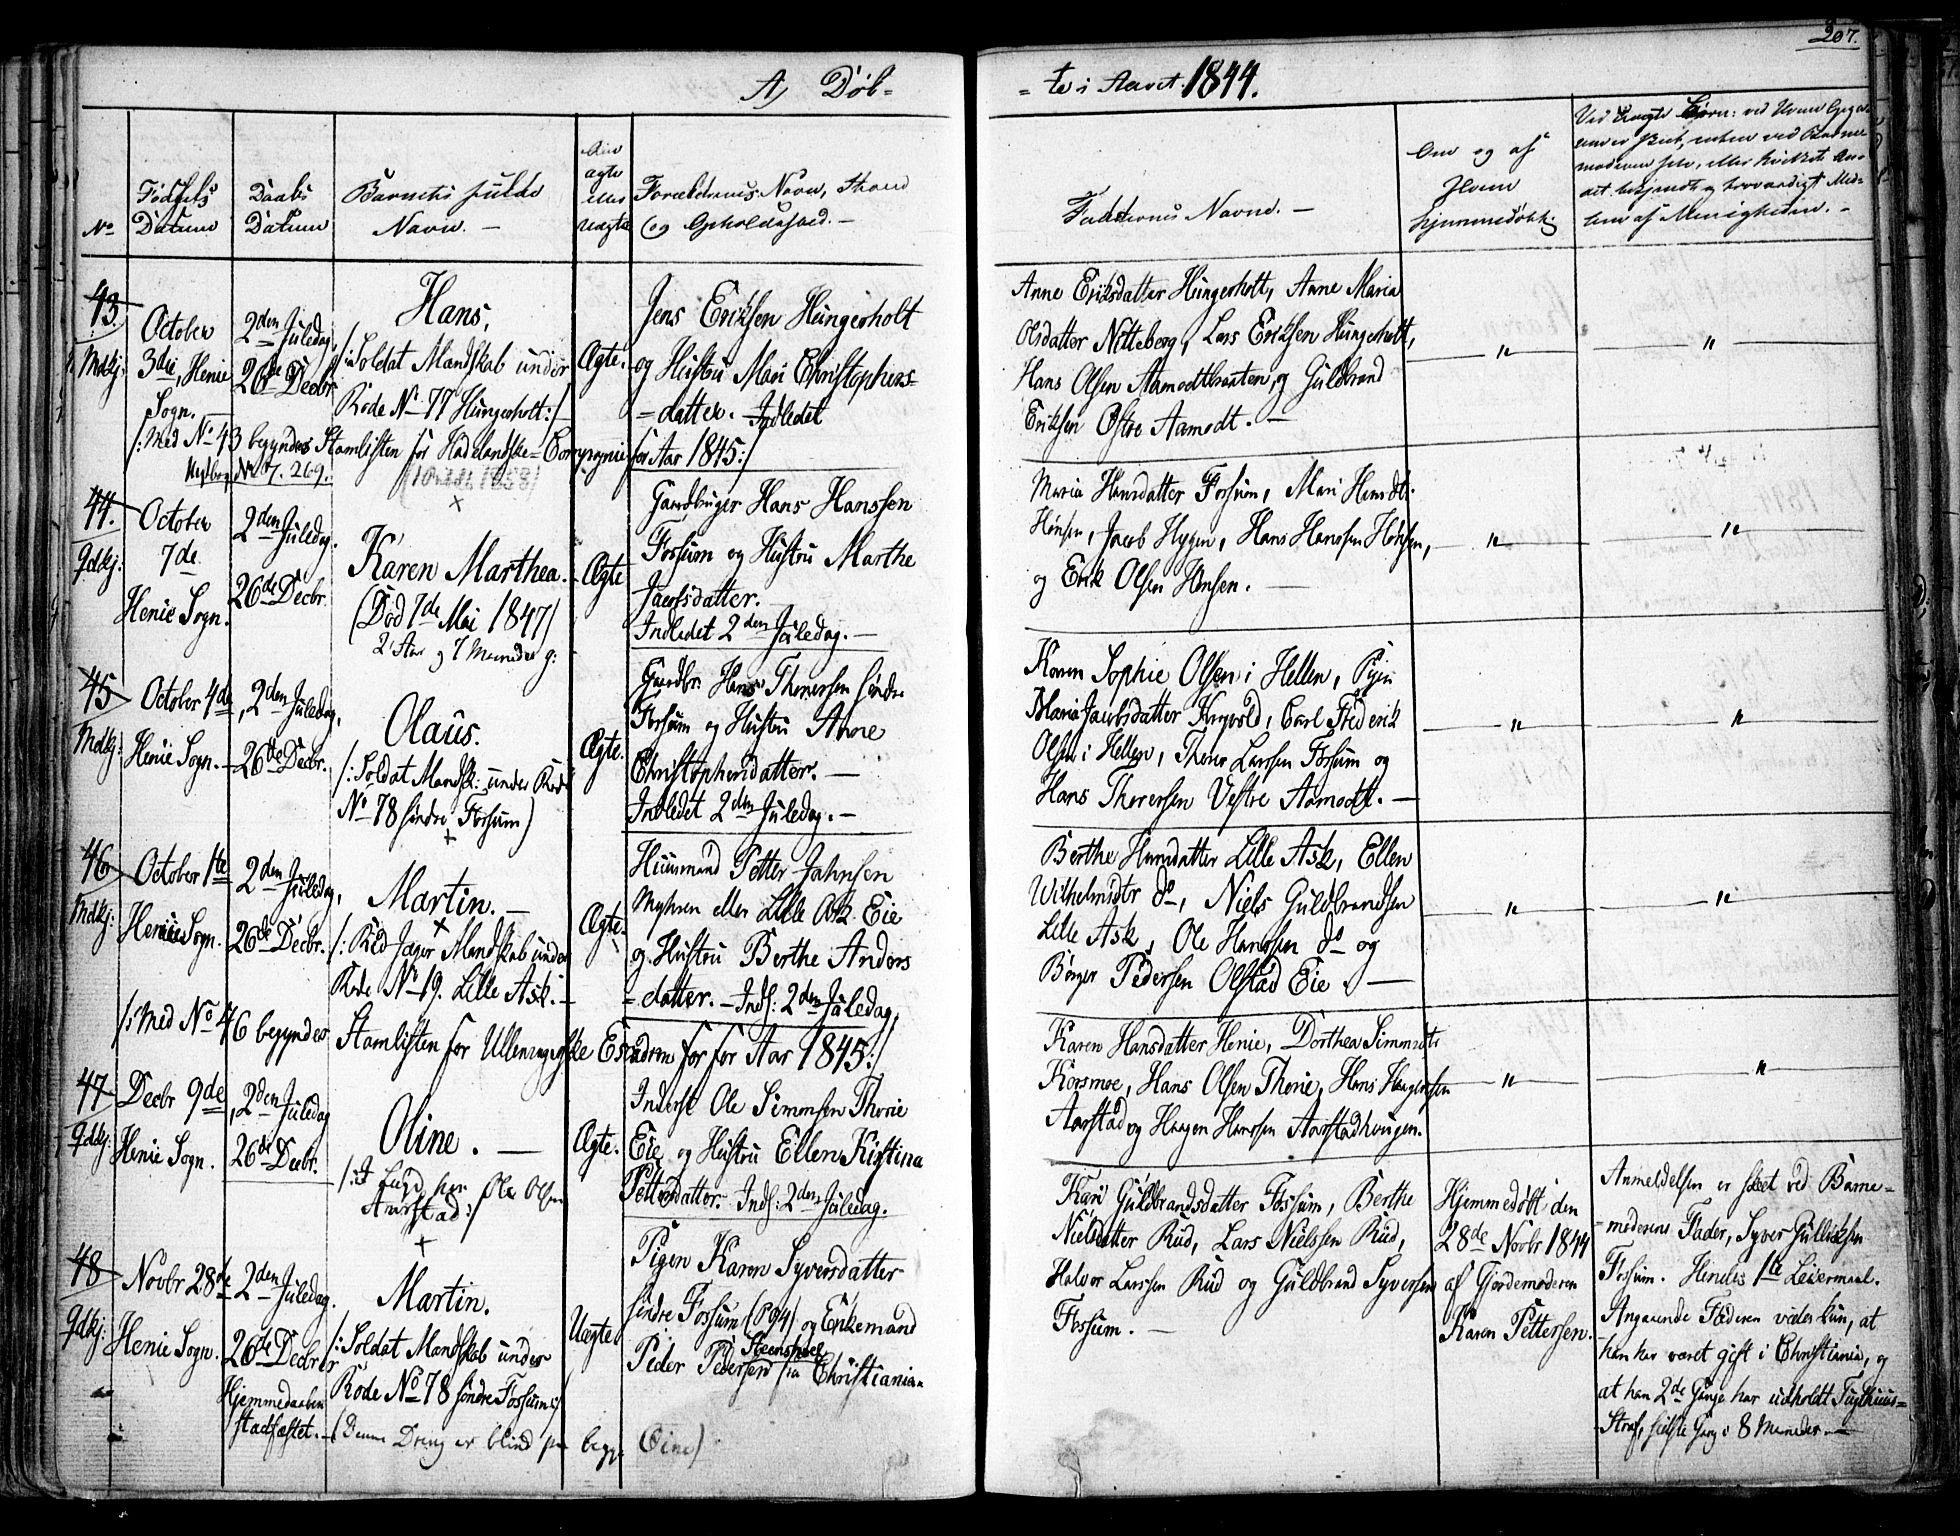 207.
A, Døb-
-te i Aaret 1844.
No
Fødsels Datum
Daabs Datum
Barnets fulde Navn. —
ægte eller uægte
Forældrenes Navn, Stand og Opholdssted. —
Faddernes Navne. —
Om og af Hvem hjemmedøbt.
43.
Mdkj:
October
3die, Henie
Sogn. —
2den Juledag,
26de Decbr
Hans,
/: Soldat Mandskab under
Rode No 77 Hungerholt :/
Ægte.
Jens Eriksen Hungerholt
og Hustru Mari Christophers-
-datter. — Indledet
/: Med No 43 begyndes Stamlisten for Hadelandske-Compagnie for Aar 1845 :/
Anne Eriksdatter Hungerholt, Anne Maria
Olsdatter Nitteberg, Lars Eriksen Hungerholt,
Hans Olsen Aamodtbraaten, og Guldbrand
Eriksen Østre Aamodt. —
"
"
44.
Qdkj:
October
7de
Henie Sogn.
2den Juledag.
26de Decbr.
Karen Marthea.
(Død 7de Mai 1847)
2 Aar og 7 Maaneder g:
Ægte
Gaardbruger Hans Hanssen
Fossum og Hustru Marthe
Jacobsdatter.
Indledet 2den Juledag. —
Maria Hansdatter Fossum, Mari Hansdtr
Hønsen, Jacob Hygen, Hans Hanssen Hønsen,
og Erik Olsen Hønsen. —
"
"
45
Mdkj:
October 4de,
Henie Sogn. —
2den Juledag,
26de Decbr.
Olaus.
/: Soldat Mandsk: under Rode
No 78 søndre Fossum)
Ægte.
Gaardbr. Hans Thoresen søndre
Fossum og Hustru Anne
Christophersdatter. —
Indledet 2den Juledag. —
Karen Sophie Olsen i Hellen, Pigen
Maria Jacobsdatter Krogvold, Carl Frederik
Olsen i Hellen, Thore Larssen Fossum og
Hans Thoresen Vestre Aamodt. —
"
"
46
Mdkj:
October 1te
Henie Sogn.
2den Juledag,
26de Decbr.
Martin. —
/: Rid Jæger Mandskab under
Rode No 19. Lille Ask. —
Ægte.
Huusmand Petter Jahnsen
Myhren eller Lille Ask Eie
og Hustru Berthe Anders
-datter. — Inds: 2den Juledag,
/: Med No 46 begyndes Stamlisten for Ullensagerske Escadron for for Aar 1845 :/
Berthe Hansdatter Lille Ask, Ellen
Wilhelmsdtr do, Niels Guldbrandsen
Lille Ask, Ole Hanssen do og
Børger Pedersen Olstad Eie. —
"
"
47
Qdkj:
Decbr 9de,
Henie Sogn.
2den Juledag
26de Decbr.
Oline. —
Ole Olsen
Aarstad :/
Ægte.
Inderst Ole Simonsen Thorie
Eie og Hustru Ellen Kistina
Pettersdatter. Inds: 2den Juledag.
Karen Hansdatter Henie, Dorthea Simonsdtr
Korsmoe, Hans Olsen Thorie, Hans Haagensen
Aarstad og Haagen Hanssen Aarstadhaugen.
"
"
48
Qdkj:
Novbr 28de
Henie Sogn.
2den Juledag.
26de Decbr
Hjemmedaaben
stadfæstet. —
Martin.
/: Soldat Mandskab under
Rode No 78 søndre Fossum :/
(Denne Dreng er blind paa begge Øine)
Uægte
Pigen Karen Syversdatter
søndre Fossum og Enkemand
Steenshoel
Peder Pedersen fra Christiania.
Kari Guldbrandsdatter Fossum, Berthe
Nielsdatter Rud, Lars Nielssen Rud,
Halvor Larssen Rud og Guldbrand Syversen
Fossum. —
Hjemmedøbt den
28de Novbr 1844
af Gjordemoderen
Karen Pettersen.
Anmeldelsen er skeet ved Barne-
-moderens Fader, Syver Gulliksen
Fossum. Hendes 1te Leiermaal.
Angaaende Faderen vides kun, at
han har været gift i Christiania, og
at han 2de Gange har udholdt Tugthuus-
-Straf, sidste Gang i 8 Maaneder. —